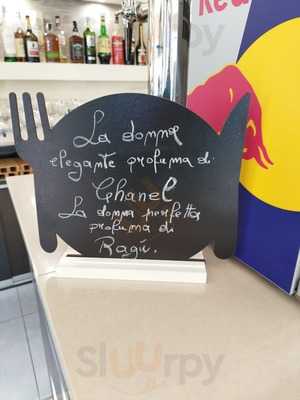 La donna
elegante profuma di
Chanel
La donna perfetta
profuma di
Ragù.
Red
Sluurpy